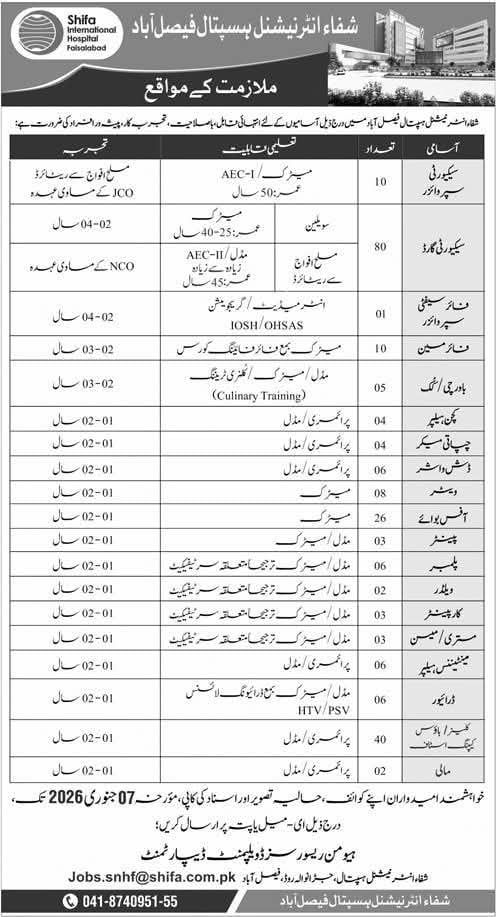 Shifa
International
Hospital
Faisalabad
شفاء انٹرنیشنل ہسپتال فیصل آباد
ملازمت کے مواقع
شفاء انٹرنیشنل ہسپتال فیصل آباد میں درج ذیل آسامیوں کے لئے انتہائی قابل، باصلاحیت، تجربہ کار، پیشہ ور افراد کی ضرورت ہے:
آسامی تعداد تعلیمی قابلیت تجربہ
سیکیورٹی سپروائزر 10 میٹرک/AEC-I عمر: 50 سال مسلح افواج سے ریٹائرڈ JCO کے مساوی عہدہ
سیکیورٹی گارڈ 80 سویلین میٹرک عمر: 25-40 سال 02-04 سال
مسلح افواج سے ریٹائرڈ مڈل/AEC-II زیادہ سے زیادہ عمر: 45 سال NCO کے مساوی عہدہ
فائر سیفٹی سپروائزر 01 انٹرمیڈیٹ/گریجویشن IOSH/OHSAS 02-04 سال
فائر مین 10 میٹرک بمع فائر فائٹنگ کورس 02-03 سال
باورچی/کُک 05 مڈل/میٹرک/کُلنری ٹریننگ (Culinary Training) 02-03 سال
کچن ہیلپر 04 پرائمری/مڈل 01-02 سال
چپاتی میکر 04 پرائمری/مڈل 01-02 سال
ڈش واشر 06 پرائمری/مڈل 01-02 سال
ویٹر 08 میٹرک 01-02 سال
آفس بوائے 26 میٹرک 01-02 سال
پینٹر 03 مڈل/میٹرک 01-02 سال
پلمبر 06 مڈل/میٹرک ترجیحاً متعلقہ سرٹیفکیٹ 01-02 سال
ویلڈر 02 مڈل/میٹرک ترجیحاً متعلقہ سرٹیفکیٹ 01-02 سال
کارپینٹر 03 مڈل/میٹرک ترجیحاً متعلقہ سرٹیفکیٹ 01-02 سال
مستری/میسن 03 مڈل/میٹرک ترجیحاً متعلقہ سرٹیفکیٹ 01-02 سال
مینٹیننس ہیلپر 06 پرائمری/مڈل 01-02 سال
ڈرائیور 06 مڈل/میٹرک بمع ڈرائیونگ لائسنس HTV/PSV 01-02 سال
کلینر/ہاؤس کیپنگ اسٹاف 40 پرائمری/مڈل 01-02 سال
مالی 02 پرائمری/مڈل 01-02 سال
خواہشمند امیدواران اپنے کوائف، حالیہ تصویر اور اسناد کی کاپی، مؤرخہ 07 جنوری 2026 تک،
درج ذیل ای-میل یا پتہ پر ارسال کریں:
ہیومن ریسورسز ڈویلپمنٹ ڈیپارٹمنٹ
شفاء انٹرنیشنل ہسپتال، جڑانوالہ روڈ، فیصل آباد Jobs.snhf@shifa.com.pk
شفاء انٹرنیشنل ہسپتال فیصل آباد 041-8740951-55